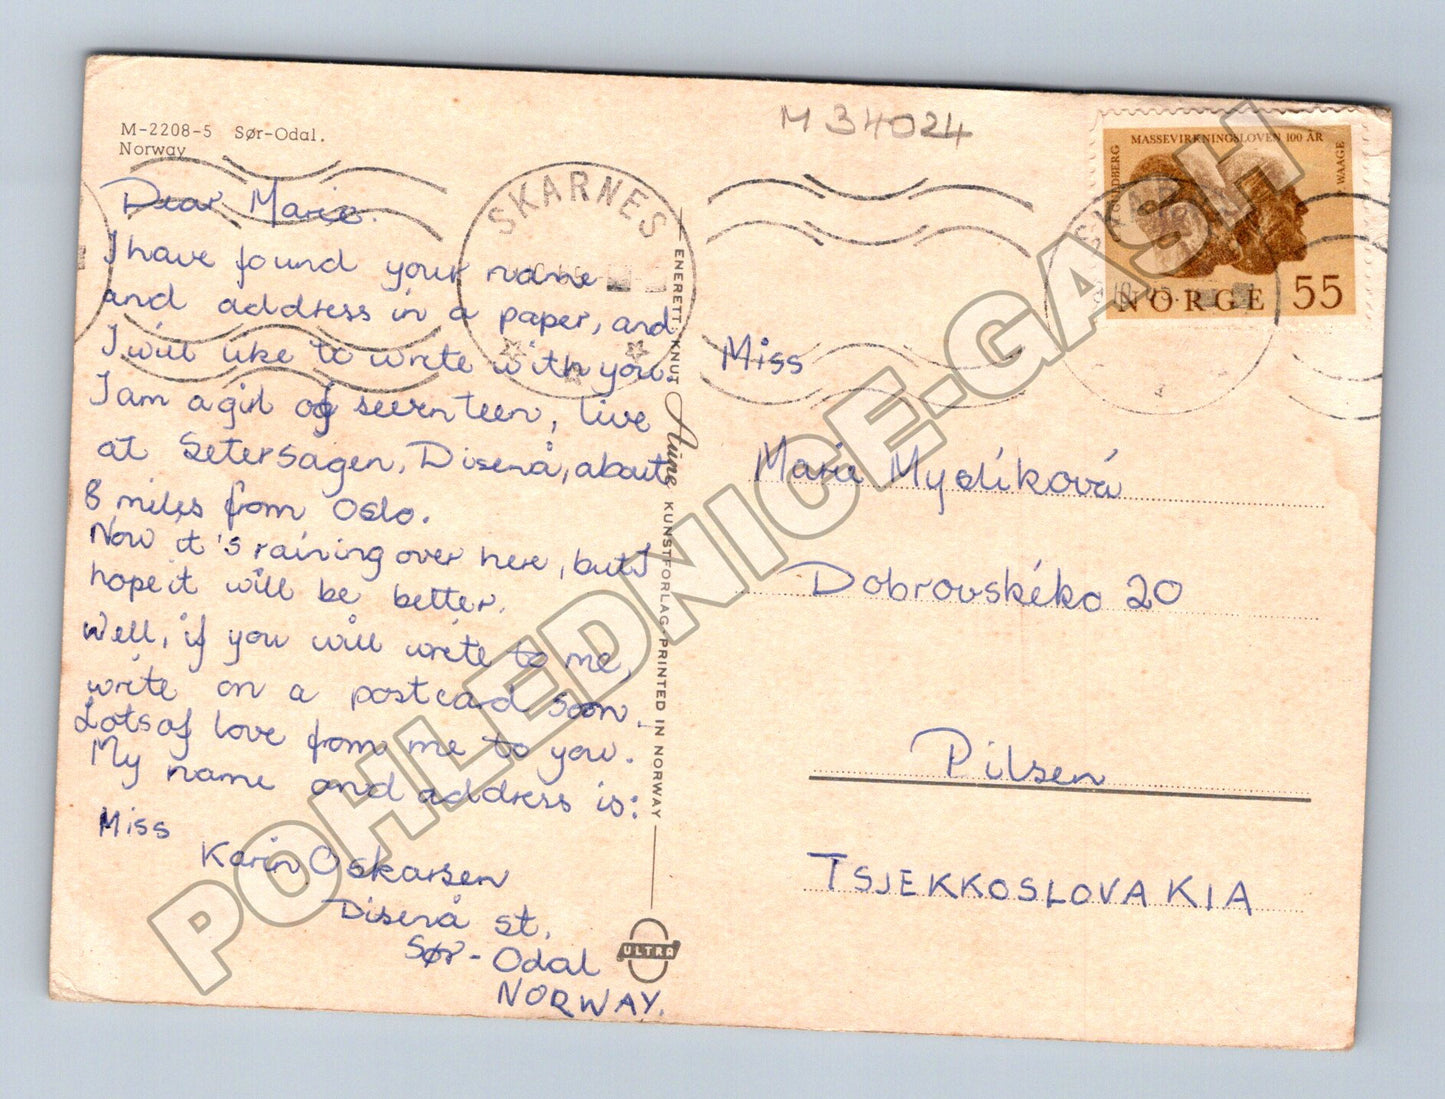 M-2208-5 Sør-Odal.
Norway
M 34024
Dear Marie.
I have found your name
and address in a paper, and
I will like to write with you.
I am a girl of seventeen, live
at Setersagen, Disenå, about
8 miles from Oslo.
Now it's raining over here, but I
hope it will be better.
Well, if you will write to me,
write on a postcard soon.
Lots of love from me to you.
My name and address is:
Miss
Karin Oskarsen
Disenå st.
Sør-Odal
NORWAY.
SKARNES
ENERETT: KNUT Aune KUNSTFORLAG. PRINTED IN NORWAY
ULTRA
MASSEVIRKNINGSLOVEN 100 ÅR
WAAGE
NORGE 55
Miss
Marie Myslíková
Dobrovského 20
Pilsen
TSJEKKOSLOVAKIA
POHLEDNICE-GASH